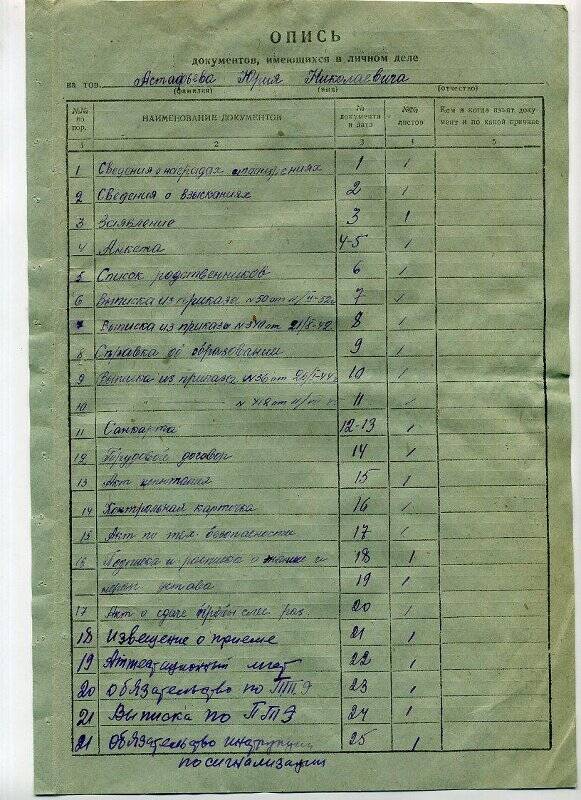 ОПИСЬ
документов, имеющихся в личном деле
на тов. Астафьева Юрия Николаевича
(фамилия) (имя) (отчество)
№№ по пор. НАИМЕНОВАНИЕ ДОКУМЕНТОВ № документа и дата №№ листов Кем и когда изъят документ и по какой причине
1 2 3 4 5
1 Сведения о наградах 1 1
2 Сведения о взысканиях 2 1
3 Заявление 3 1
4 Анкета 4-5 1
5 Список родственников 6 1
6 Выписка из приказа №50 от 7 1
Выписка из приказа 8 1
8 Справка об образовании 9 1
9 Выписка из приказа №36 от 10 1
10 " 11 1
11 Санкарта 12-13 1
12 Трудовой договор 14 1
13 Акт испытания 15 1
14 Контрольная карточка 16 1
15 Акт по тех. безопасности 17 1
16 Подписка и расписка о 18 1
устава 19 1
17 Акт о сдаче пробы 20 1
18 Извещение о приеме 21 1
19 Аттестационный лист 22 1
20 Обязательство по ПТЭ 23 1
21 Выписка по ПТЭ 24 1
21 Обязательство инструкции 25 1
по сигнализации